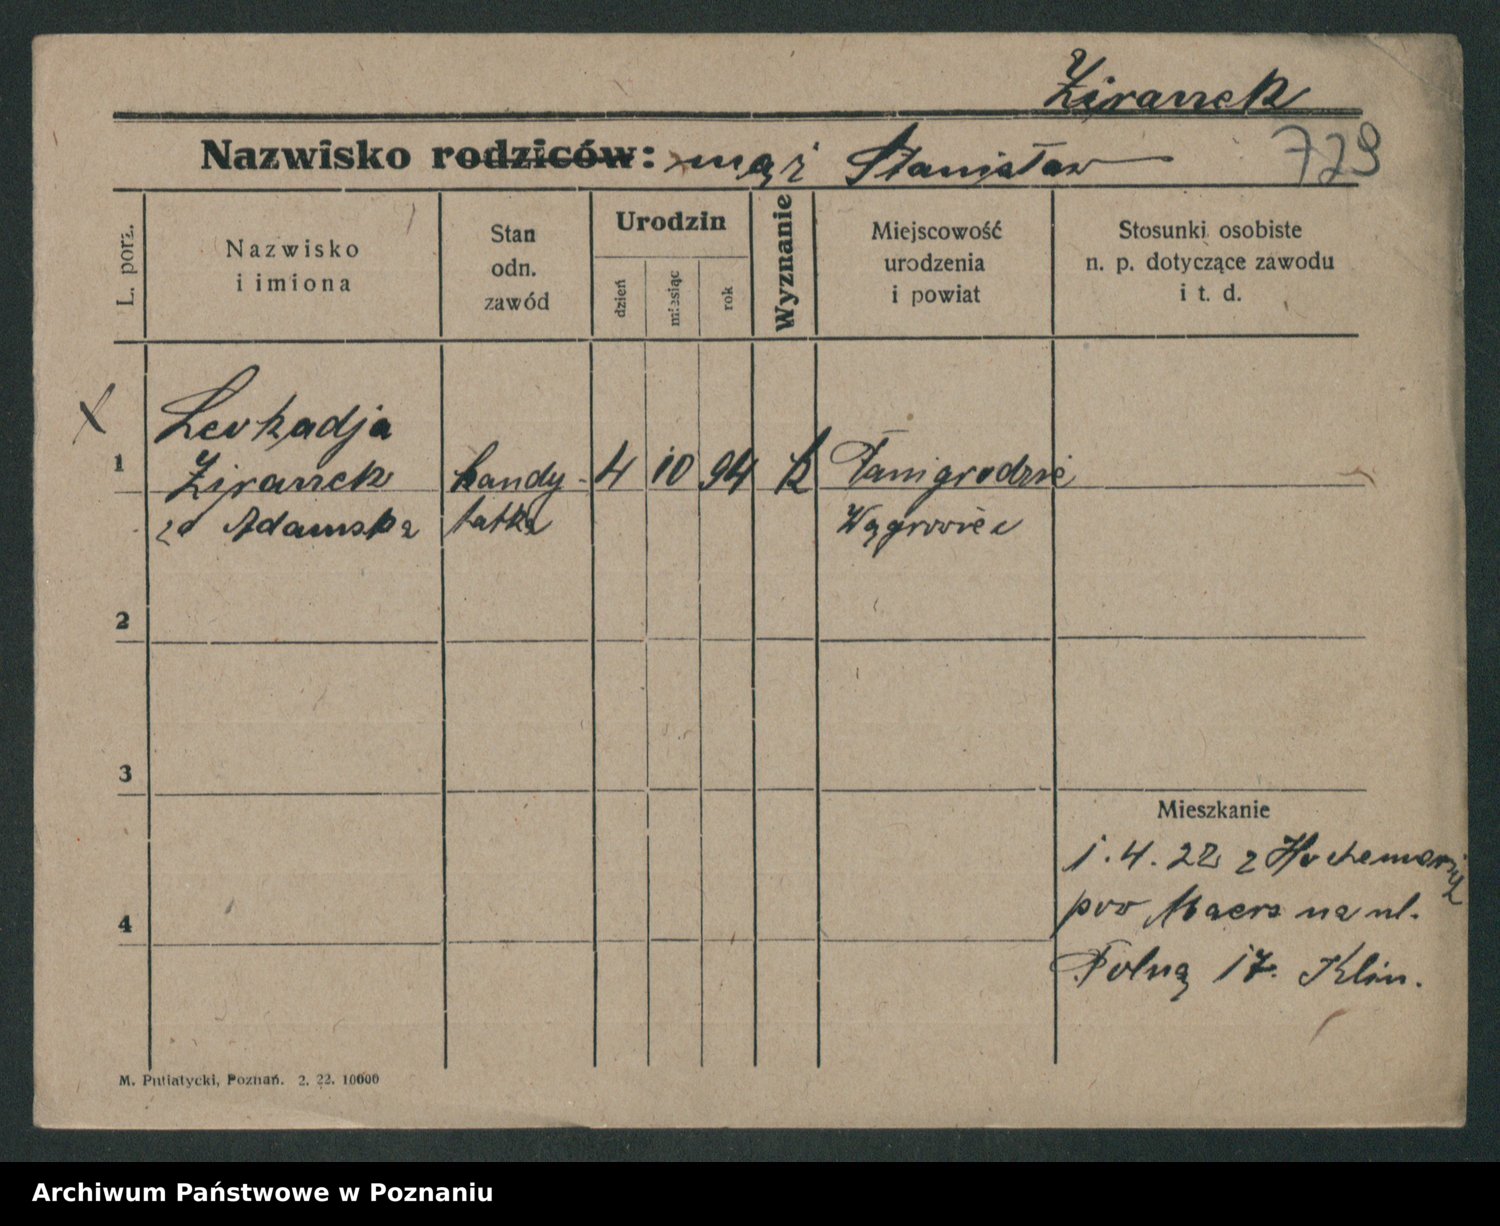 Ziranek
Nazwisko rodziców: mąż Stanisław
729
L. porz.
Nazwisko
i imiona
Stan
odn.
zawód
Urodzin
dzień
miesiąc
rok
Wyznanie
Miejscowość
urodzenia
i powiat
Stosunki osobiste
n. p. dotyczące zawodu
i t. d.
x
1
Leokadja
Ziranek
zd Adamska
kandy-
tatka
4 10 94 k
Panigrodzie
Wągrowiec
2
3
4
Mieszkanie
1.4.22 z
pow na ul.
Polną 17. Klin.
M. Putiatycki, Poznań. 2. 22. 10000
Archiwum Państwowe w Poznaniu